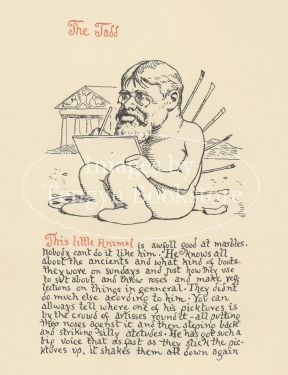 The Tadd
This little Animal is awfull good at marbles.
Nobody cant do it like him. He knows all
about the ancients and what kind of boots
they wore on sundays and just how they use
to sit about and throw roses and make ref
lections on things in genneral. They didnt
do much else acording to him. You can
allways tell where one of his picktures is
by the crowd of artises round it - all putting
their noses against it and then steping back
and striking silly atetudes. He has got such a
big voice that as fast as they stick the pic
ktures up, it shakes them all down again
Images by
Tennyo Bookstore